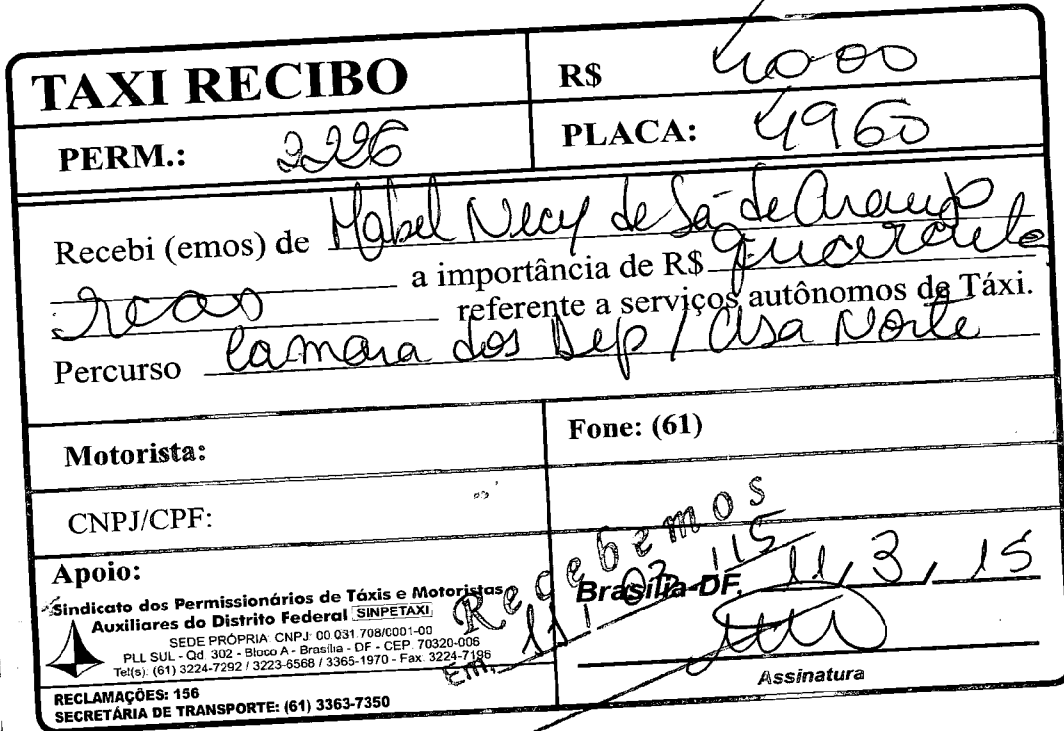 TAXI RECIBO
R$ 40 00
PERM.: 2226
PLACA: 4960
Recebi (emos) de Mabel Necy de Sá de Araujo
a importância de R$ quarenta
reais referente a serviços autônomos de Táxi.
Percurso Camara dos Dep / Asa Norte
Motorista:
Fone: (61)
CNPJ/CPF:
Recebemos
Em, 11, 03, 15
Apoio:
Sindicato dos Permissionários de Táxis e Motoristas
Auxiliares do Distrito Federal SINPETAXI
SEDE PRÓPRIA: CNPJ: 00.031.708/0001-00
PLL SUL - Qd. 302 - Bloco A - Brasília - DF - CEP. 70320-006
Tel(s): (61) 3224-7292 / 3223-6568 / 3365-1970 - Fax: 3224-7196
Brasília-DF, 11, 3, 15
Assinatura
RECLAMAÇÕES: 156
SECRETÁRIA DE TRANSPORTE: (61) 3363-7350